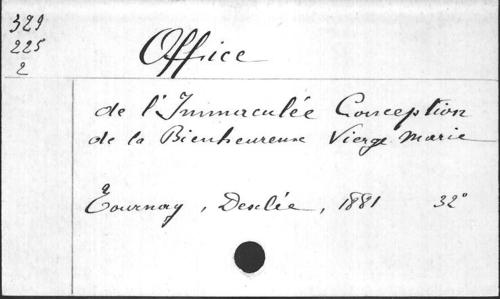 329
225
2
Office
de l'Immaculée Conception
de la Bienheureuse Vierge Marie
Tournay, Desclée, 1881 32°